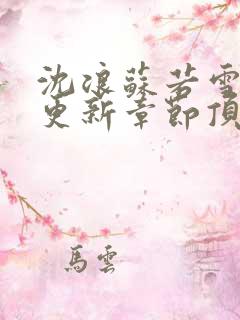 沈浪蘇若雪
更新章節頂
馬雲